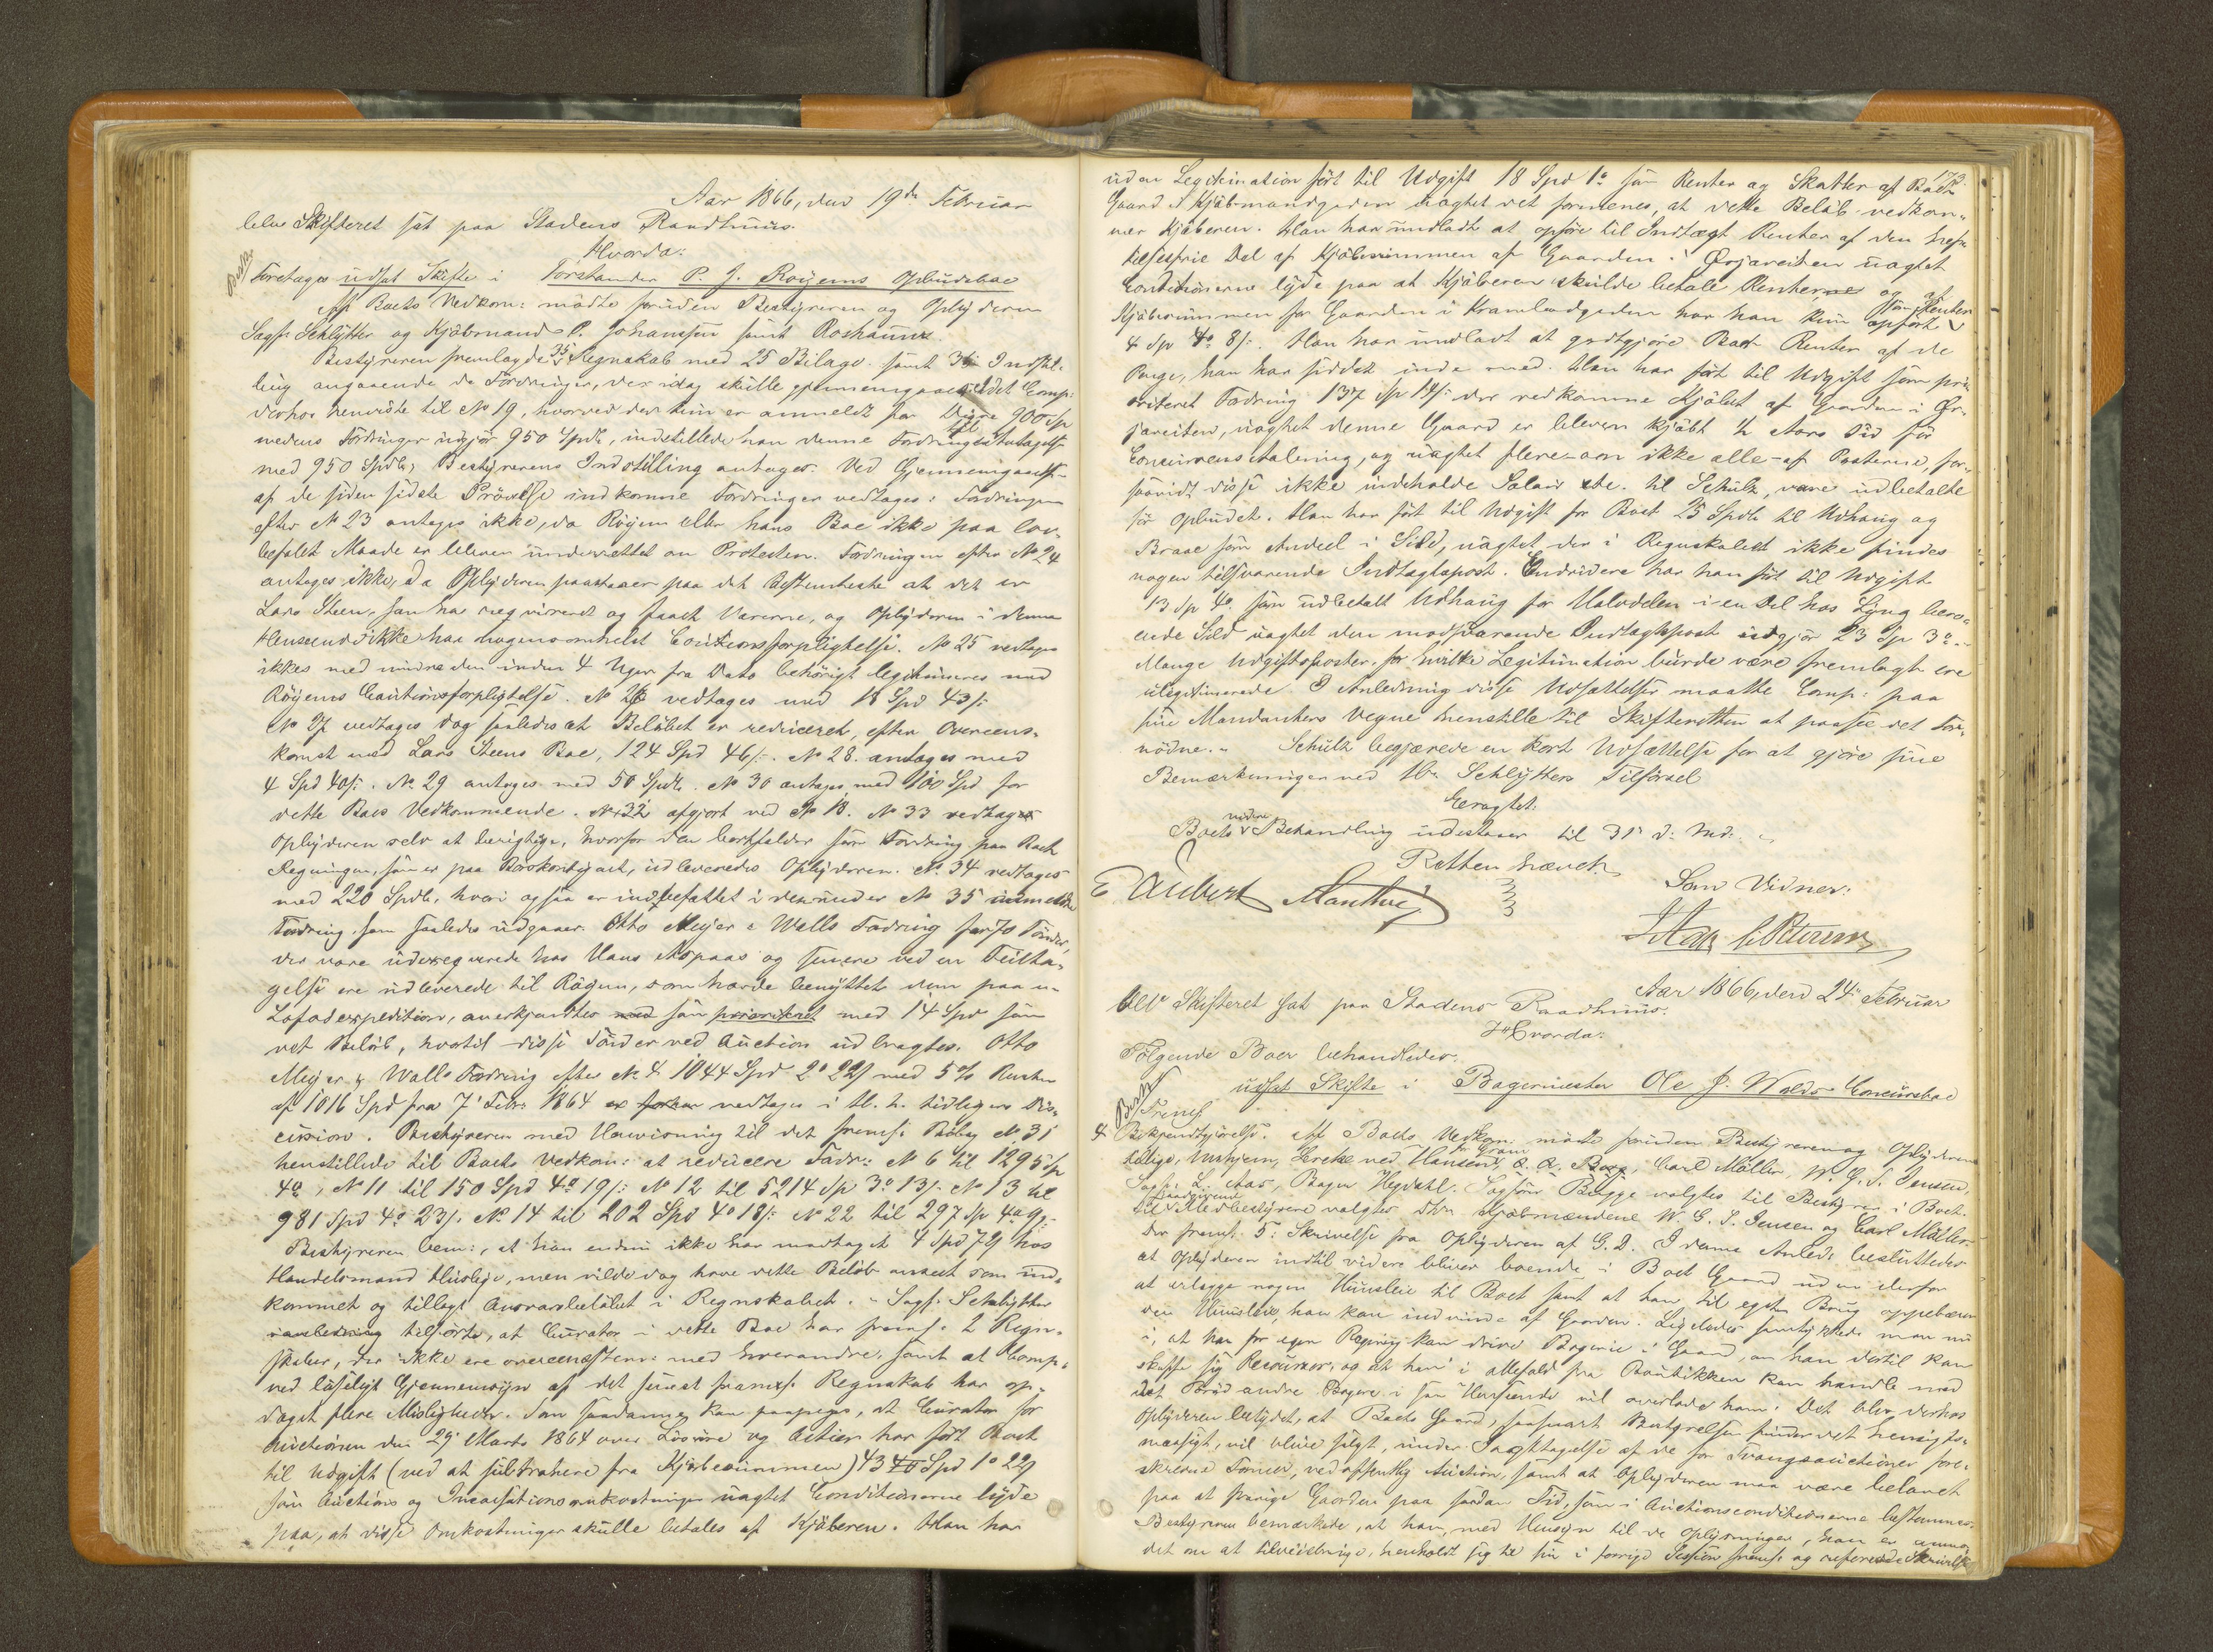 Aar 1866, den 19de Februar
blev Skifteret sat paa Stadens Raadhuus.
Hvorda:
Foretages udsat Skifte i Forstander P. J. Röyems Opbudsbae
Af Boets Vedkom: mødte foruden Bestyreren og Opbyderen
Sagf: Schlytter og Kjøbmand P. Johannsen samt Roshauw
Bestyreren fremlagde 35 Regnskab med 25 Bilage samt 36 Indstil-
ling angaaende de Fordringer, der idag skulle gjennemgaaes, idet Comp:
derhos henviste til No 19, hvorved der kun er anmeldt for 900 Sp
medens Fordringen udgjør 950 Spdlr, indstillede han denne Fordring antaget
med 950 Spdlr; Bestyrerens Indstilling antages. Ved Gjennemgaaelse
af de siden sidste Prøvelse indkomne Fordringer vedtages: Fordringen
efter No 23 antages ikke, da Röyem eller hans Bae ikke paa lov-
befalet Maade er bleven underrettet om Protesten. Fordringen efter No 24
antages ikke, da Opbyderen paastaaer paa det Bestemteste at det er
Lars Steen, som har reqvireret og faaet Varerne, og Opbyderen i denne
Henseende ikke har nogensomhelst Cautionsforpligtelse. No 25 vedtages
ikkes med mindre den inden 4 Uger fra Dato behørigt legitimeres med
Röyems Cautionsforpligtelse. No 26 vedtages med 18 Spd 43 /:
No 27 vedtages dog saaledes at Beløbet er reduceret, efter Overeens-
komst med Lars Steens Bae, 124 Spd 46 /:. No 28. antages med
4 Spd 40 /:. No 29 antages med 50 Spdlr. No 30 antages med 100 Spd for
dette Boes Vedkommende. No 32 afgjort ved No 18. No 33 vedtages
Opbyderen selv at berigtige, hvorfor den bortfalder som Fordring paa Boet
Regningen, som er paa udleveredes Opbyderen. No 34 vedtages
med 220 Spdlr, hvori ogsaa er indbefattet i den under No 35 anmeldte
Fordring som saaledes udgaaer. Otto Meyer & Walls Fordring for 70 Tønder,
der vare udexeqverede hos Hans Aspaas og senere ved en Feilta-
gelse ere udleverede til Röyem, som havde benyttet dem paa en
Lofodexpedition, anerkjendtes som prioriteret med 14 Spd som
det Beløb, hvortil disse Tønder ved Auction udbragtes. Otto
Meyer & Walls Fordring efter No 4 1044 Spd 2o 22/ med 5% Renter
af 1016 Spd fra 7' Febr: 1864 vedtages i H. t. tidligere Dis-
cussion. Bestyreren med Henviisning til det fremf: Bilag No 31
henstillede til Boets Vedkom: at reducere Fordr: No 6 til 1295 Sp
4o, No 11 til 150 Spd 4o 19 /: No 12 til 5214 Sp 3o 13 /: No 13 til
981 Spd 4o 23 /. No 14 til 202 Spd 4o 18 /: No 22 til 297 Sp 4o 9 /:
Bestyreren bem:, at han endnu ikke har modtaget 4 Spd 72/ hos
Handelsmand , men vilde dog have dette Beløb anseet som ind-
kommet og tillagt Ansvarsbeløbet i Regnskabet. - Sagf: Schlytter
tilførte, at Curator i dette Bae har fremf: 2 Regn-
skaber, der ikke ere overeensstem: med hverandre, samt at Comp:
ved løseligt Gjennemsyn af det senest fremf: Regnskab har op-
daget flere Misligheder. Som saadanne kan paapeges, at Curator for
Auctionen den 29' Marts 1864 over Løsøre og Actier har ført Boet
til Udgift (ved at subtrahere fra Kjøbesummen) 43 Spd 1o 22/
som Auctions og Incassationsomkostninger uagtet Conditionerne lyde
paa, at disse Omkostninger skulle betales af Kjøberen. Han har
173.
uden Legitimation ført til Udgift 18 Spd 1o som Renter og Skatter af Boets
Gaard i Kjøbmandgaden uagtet det formenes, at dette Beløb vedkom-
mer Kjøberen. Han har undladt at opføre til Indtægt Renter af den hef-
telsesfrie Del af Kjøbesummen af Gaarden i Ørjaveiten uagtet
Conditionerne lyde paa at Kjøberen skulde betale Renter og af
Kjøbesummen for Gaarden i Krambodgaden har han kun opført som Renter
4 Sp 4o 8/:. Han har undladt at godtgjøre Boet Renter af de
Penge, han har siddet inde med. Han har ført til Udgift som pri-
oriteret Fordring 137 Sp 14/: der vedkomme Kjøbet af Gaarden i Ør-
javeiten, uagtet denne Gaard er bleven kjøbt ½ Aars Tid før
Concursens Aabning, og uagtet flere - om ikke alle - af Posterne, for-
saavidt disse ikke indeholde Salair etc. til Schulz, vare udbetalte
før Opbudet. Han har ført til Udgift for Boet 25 Spdlr til Udhaug og
Braae som Andeel i Sild, uagtet der i Regnskabet ikke findes
nogen tilsvarende Indtægtspost. Endvidere har han ført til Udgift
13 Sp 4o som udbetalt Udhaug for Halvdelen i en Del hos Lyng bero-
ende Sild uagtet den modsvarende Indtægtspost udgjør 23 Sp 3o..
Mange Udgiftsposter, for hvilke Legitimation burde være fremlagt ere
ulegitimerede. I Anledning disse Udsættelser maatte Comp: paa
sine Mandanters Vegne henstille til Skifteretten at paasee det For-
nødne. - Schulz begjærede en kort Udsættelse for at gjøre sine
Bemærkninger ved Hr. Schlytters Tilførsel
Eragtet:
Boets videre Behandling udestaaer til 31' d: Md:
Retten hævet.
Som Vidner:
E Aubert Manthey
Aar 1866, den 24' Februar
blev Skifteret sat paa Stadens Raadhuus.
Hvorda:
Følgende Boer behandledes.
udsat Skifte i Bagermester Ole J. Wolds Concursbae
Fremf:
4 Bekjendtgjørelse. Af Boets Vedkom: mødte foruden Bestyreren og Opbyderen
tillige, Hansen, Carl Møller, W. G. S. Jensen,
Sagf: L. Aas, Bager Hegdahl. Sagfører Bugge valgtes til Bestyrer i Boet.
til Medbestyrere valgtes Hr Kjøbmændene W. G. S. Jensen og Carl Møller.
Der fremf: 5: Skrivelse fra Opbyderen af G. D. I denne Anled: besluttedes
at Opbyderen indtil videre bliver boende i Boets Gaard uden derfor
at erlægge nogen Huusleie til Boet samt at han til egen Brug oppebærer
den Huusleie, han kan indvinde af Gaarden. Ligeledes samtykkede man nu
i, at han for egen Regning kan drive Bageriet i Gaard, om han dertil kan
skaffe sig Recourser, og at han i altfald fra Boutikken kan handle med
det Brød andre Bagere i saa Henseende vil overlade ham. Det blev derhos
Opbyderen betydet, at Boets Gaard, saasnart Bestyrelsen finder det hensigts-
mæssigt, vil blive solgt, under Iagttagelse af de for Tvangsauctioner fore-
skrevne Former, ved offentlig Auction, samt at Opbyderen maa være belavet
paa at fravige Gaarden paa saadan Tid, som i Auctionsconditionerne bestemmes.
Bestyreren bemærkede, at han, med Hensyn til de Oplysninger, han er anmo-
det om at tilveiebringe, henholdt sig til sin i forrige Session fremf: og refererede Skrivelse